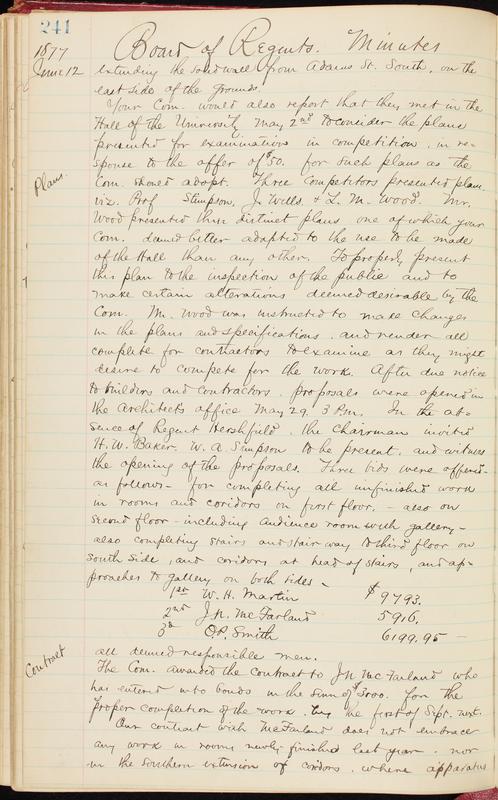 241
Board of Regents. Minutes
1877
June 12
extending the sand wall from Adams St. South, on the
east side of the grounds.
Your Com. would also report that they met in the
Hall of the University May 2nd to consider the plans
presented for examinations in competition, in re-
sponse to the offer of $50. for such plans as the
Plans.
Com. should adopt. Three competitors presented plans
viz. Prof Stimpson, J. Wells. & L. M. Wood. Mr.
Wood presented three distinct plans one of which your
Com. deemed better adapted to the use to be made
of the Hall than any other. To properly present
this plan to the inspection of the public and to
make certain alterations deemed desirable by the
Com. Mr. Wood was instructed to make changes
in the plans and specifications, and render all
complete for contractors to examine as they might
desire to compete for the work. After due notice
to builders and contractors, proposals were opened in
the architects office May 29, 3 P.m. In the ab-
sence of Regent Hershfield, the Chairman invited
H. W. Baker, W. A. Simpson to be present, and witness
the opening of the proposals. Three bids were offered
as follows - for completing all unfinished work
in rooms and coridors on first floor, - also on
second floor - including audience room with gallery -
also completing stairs and stair way to third floor on
south side, and coridors at head of stairs, and ap-
proaches to gallery on both sides -
1st W. H. Martin $9793.
2nd J. N. McFarland 5916.
3d O. P. Smith 6199.95 -
all deemed responsible men.
Contract
The Com. awarded the contract to J N McFarland who
has entered into bonds in the sum of $5000. for the
proper completion of the work, by the first of Sept. next.
Our contract with McFarland does not embrace
any work in rooms newly finished last year, nor
in the southern extension of coridors, where apparatus